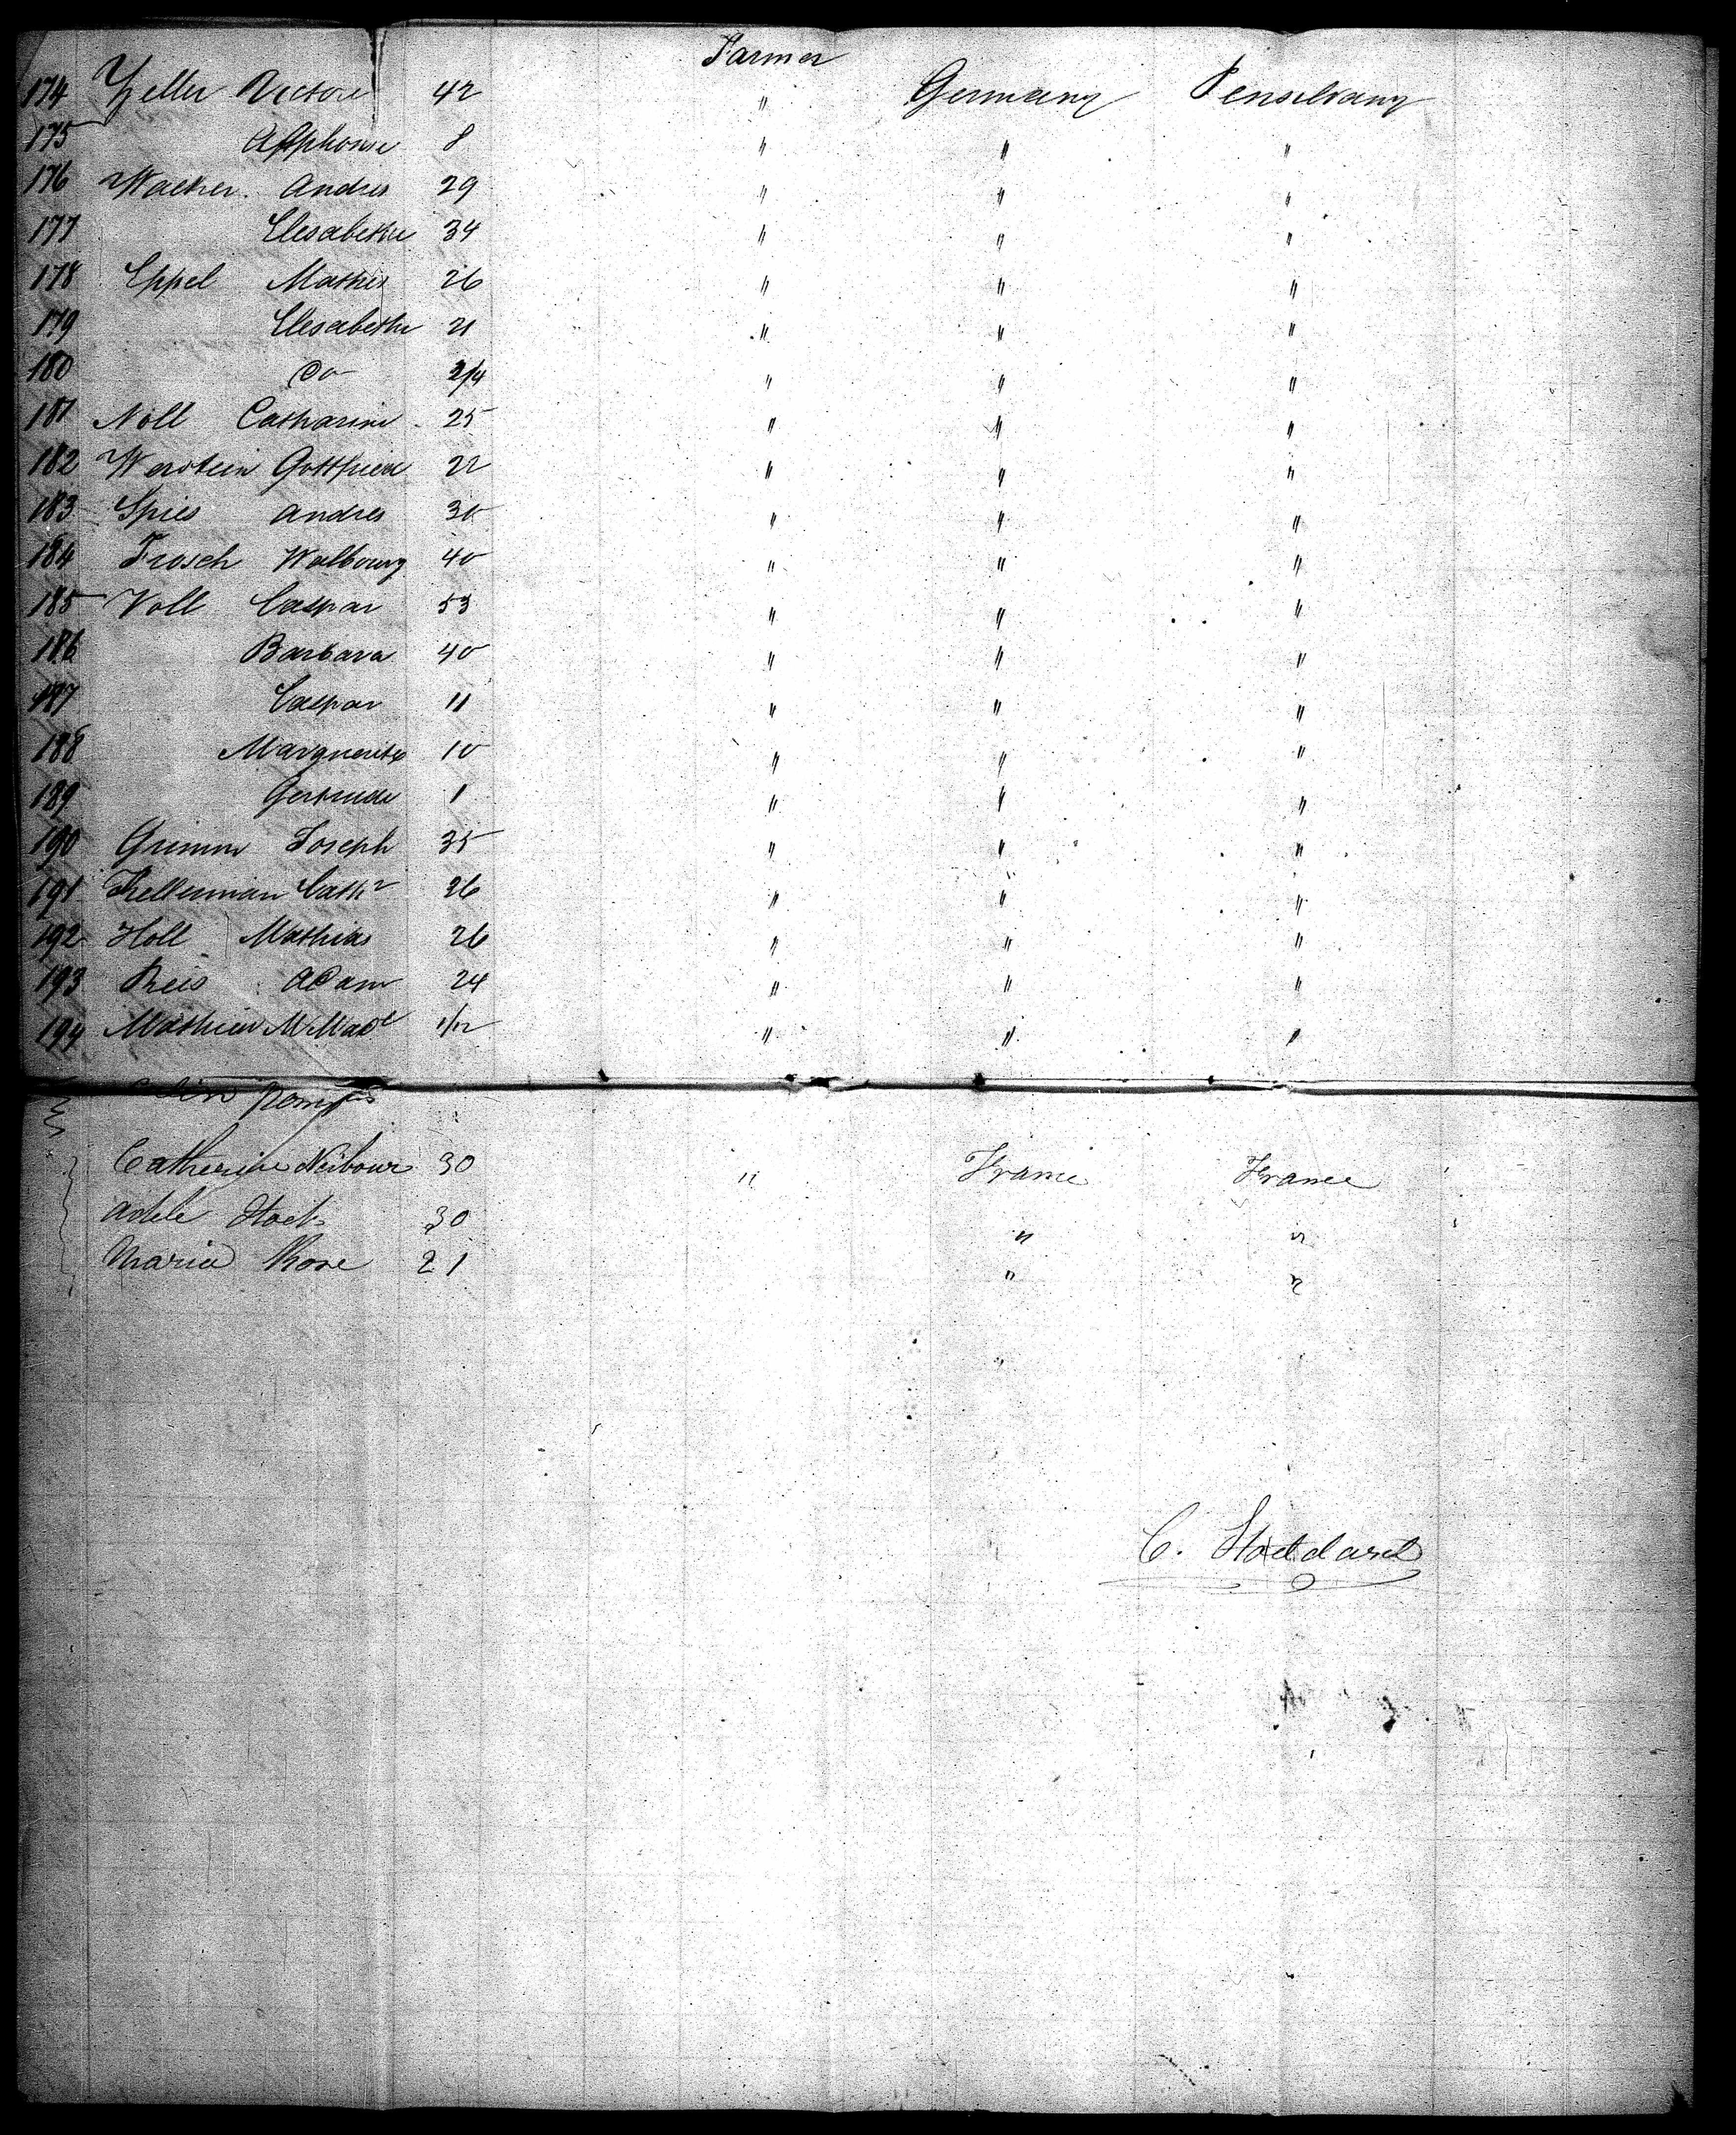 Farmer
174 Zeller Victore 42 " Germany Pensilvany
175 Alphonse 8 " " "
176 Wacker Andres 29 " " "
177 Elesabethe 34 " " "
178 Eppel Mathis 26 " " "
179 Elesabethe 21 " " "
180 Do 2/4 " " "
181 Noll Catharine 25 " " "
182 Werstein Gottfried 22 " " "
183 Spies Andres 30 " " "
184 Frosch Walbourg 40 " " "
185 Voll Caspar 53 " " "
186 Barbara 40 " " "
187 Caspar 11 " " "
188 Marguerite 10 " " "
189 Gertrude 1 " " "
190 Grimm Joseph 35 " " "
191 Kellerman Cathe 26 " " "
192 Holl Mathias 26 " " "
193 Reis Adam 24 " " "
194 Mathieu M Made 1/12 " " "
Catherine Neibour 30 " France France
Adele Hock 30 " "
Maria Rose 21 " "
C. Stoddard